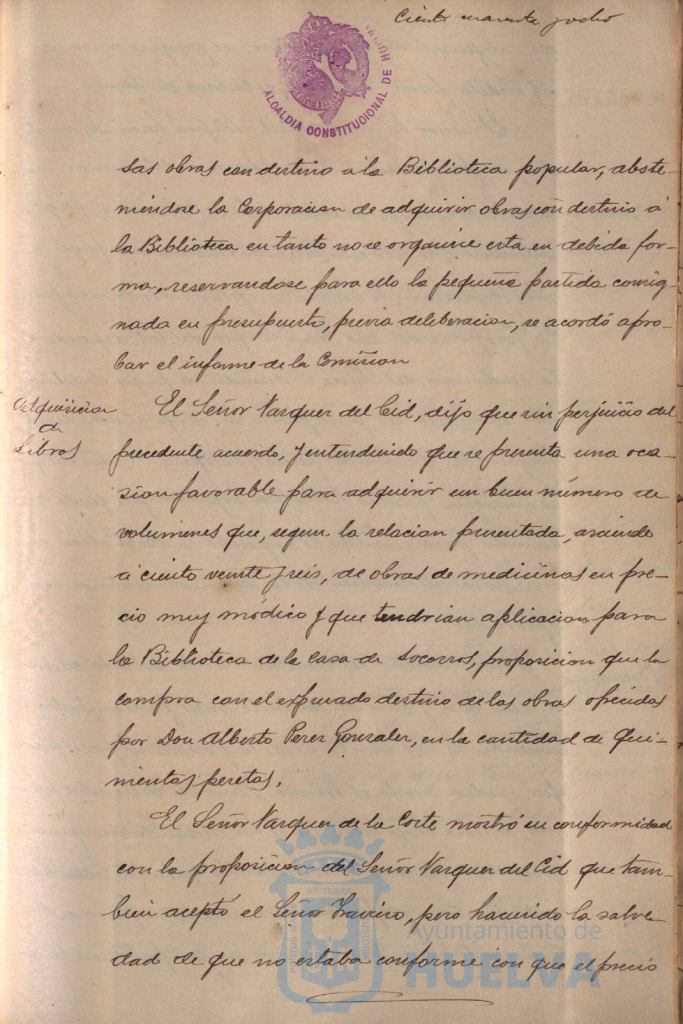 Ciento cuarenta y ocho
ALCALDIA CONSTITUCIONAL DE HUELVA
sas obras con destino á la Biblioteca popular, abste-
niéndose la Corporacion de adquirir obras con destino á
la Biblioteca en tanto no se organice esta en debida for-
ma, reservandose para ello la pequeña partida consig-
nada en presupuesto, previa deliberacion, se acordó apro-
bar el informe de la Comision
Adquisicion
de
Libros
El Señor Vazquez del Cid, dijo que sin perjuicio del
precedente acuerdo, y entendiendo que se presenta una oca-
sion favorable para adquirir un buen número de
volumenes que, segun la relacion presentada, asciende
á ciento veinte y seis, de obras de medicinas en pre-
cio muy módico y que tendrian aplicacion para
la Biblioteca de la Casa de Socorros, proposicion que la
compra con el expresado destino de las obras ofrecidas
por Don Alberto Perez Gonzalez, en la cantidad de qui-
nientas pesetas.
El Señor Vazquez de la Corte mostró su conformidad
con la proposicion del Señor Vazquez del Cid que tam-
bien aceptó el Señor Traviño, pero haciendo la salve
dad de que no estaba conforme con que el precio
Ayuntamiento de
HUELVA